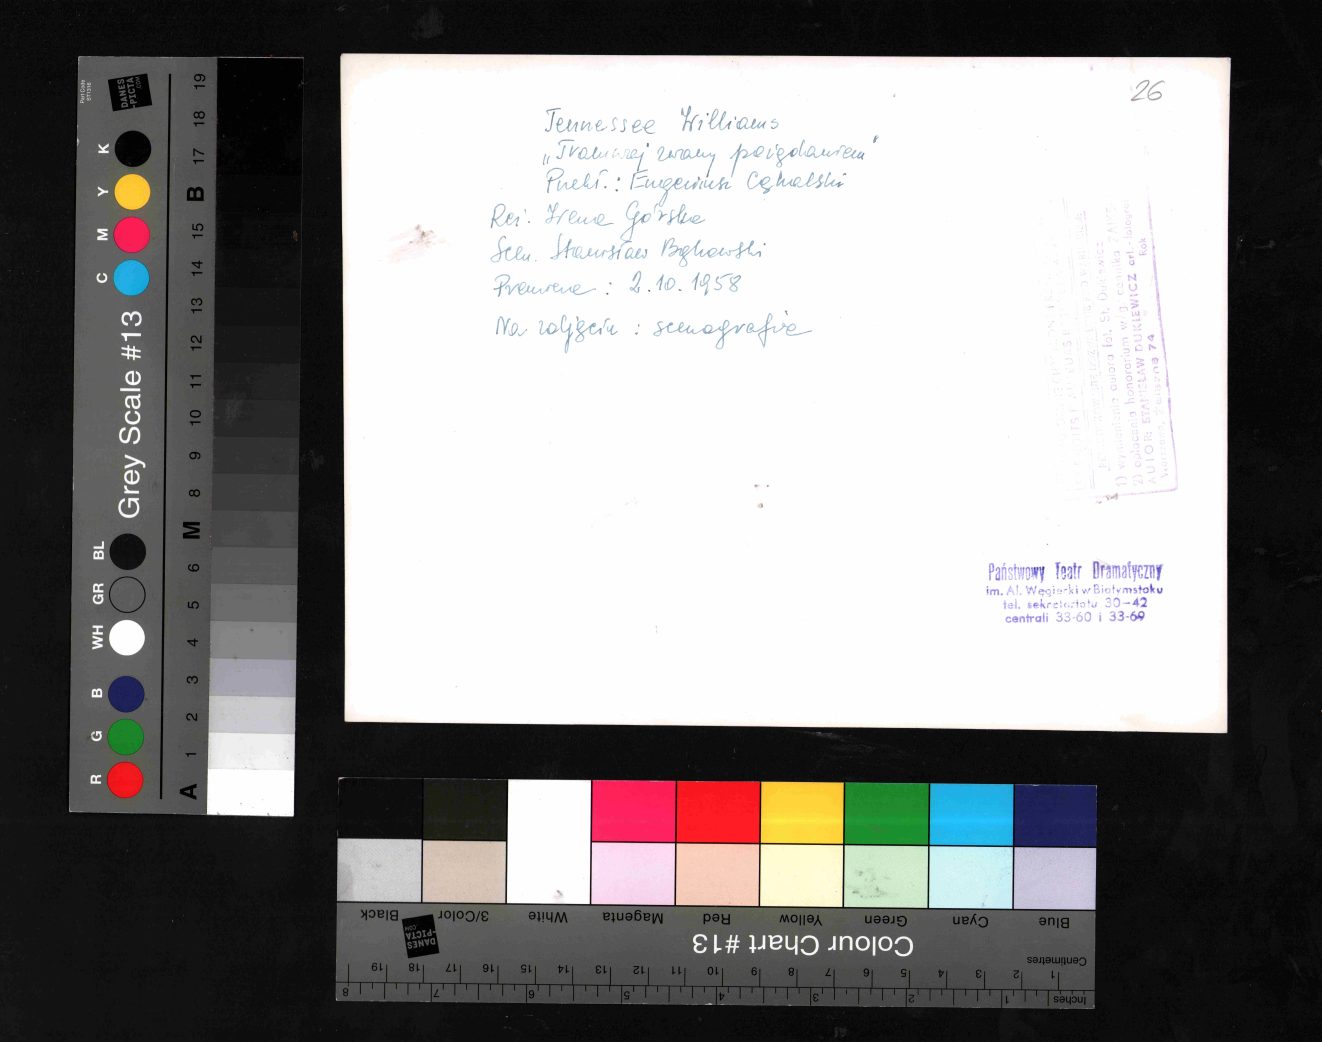 26
Tennessee Williams
„Tramwaj zwany pożądaniem"
Przekł.: Eugeniusz Cękalski
Reż. Irena Górska
Scen. Stanisław Bąkowski
Premiera: 2.10.1958
Na zdjęciu: scenografia
1) wymienienia autora fot. St. Dukiewicz
2) opłacenia honorarium w/g cennika ZAIKS
AUTOR: STANISŁAW DUKIEWICZ art.-fotograf
Państwowy Teatr Dramatyczny
im. Al. Węgierki w Białymstoku
tel. sekretariatu 30-42
centrali 33-60 i 33-69
Part Code
ST1316
DANES
-PICTA
.COM
Grey Scale #13
R G B WH GR BL C M Y K
A 1 2 3 4 5 6 M 8 9 10 11 12 13 14 15 B 17 18 19
Blue Cyan Green Yellow Red Magenta White 3/Color Black
Colour Chart #13
DANES
-PICTA
.COM
Centimetres
1 2 3 4 5 6 7 8 9 10 11 12 13 14 15 16 17 18 19
Inches
1 2 3 4 5 6 7 8